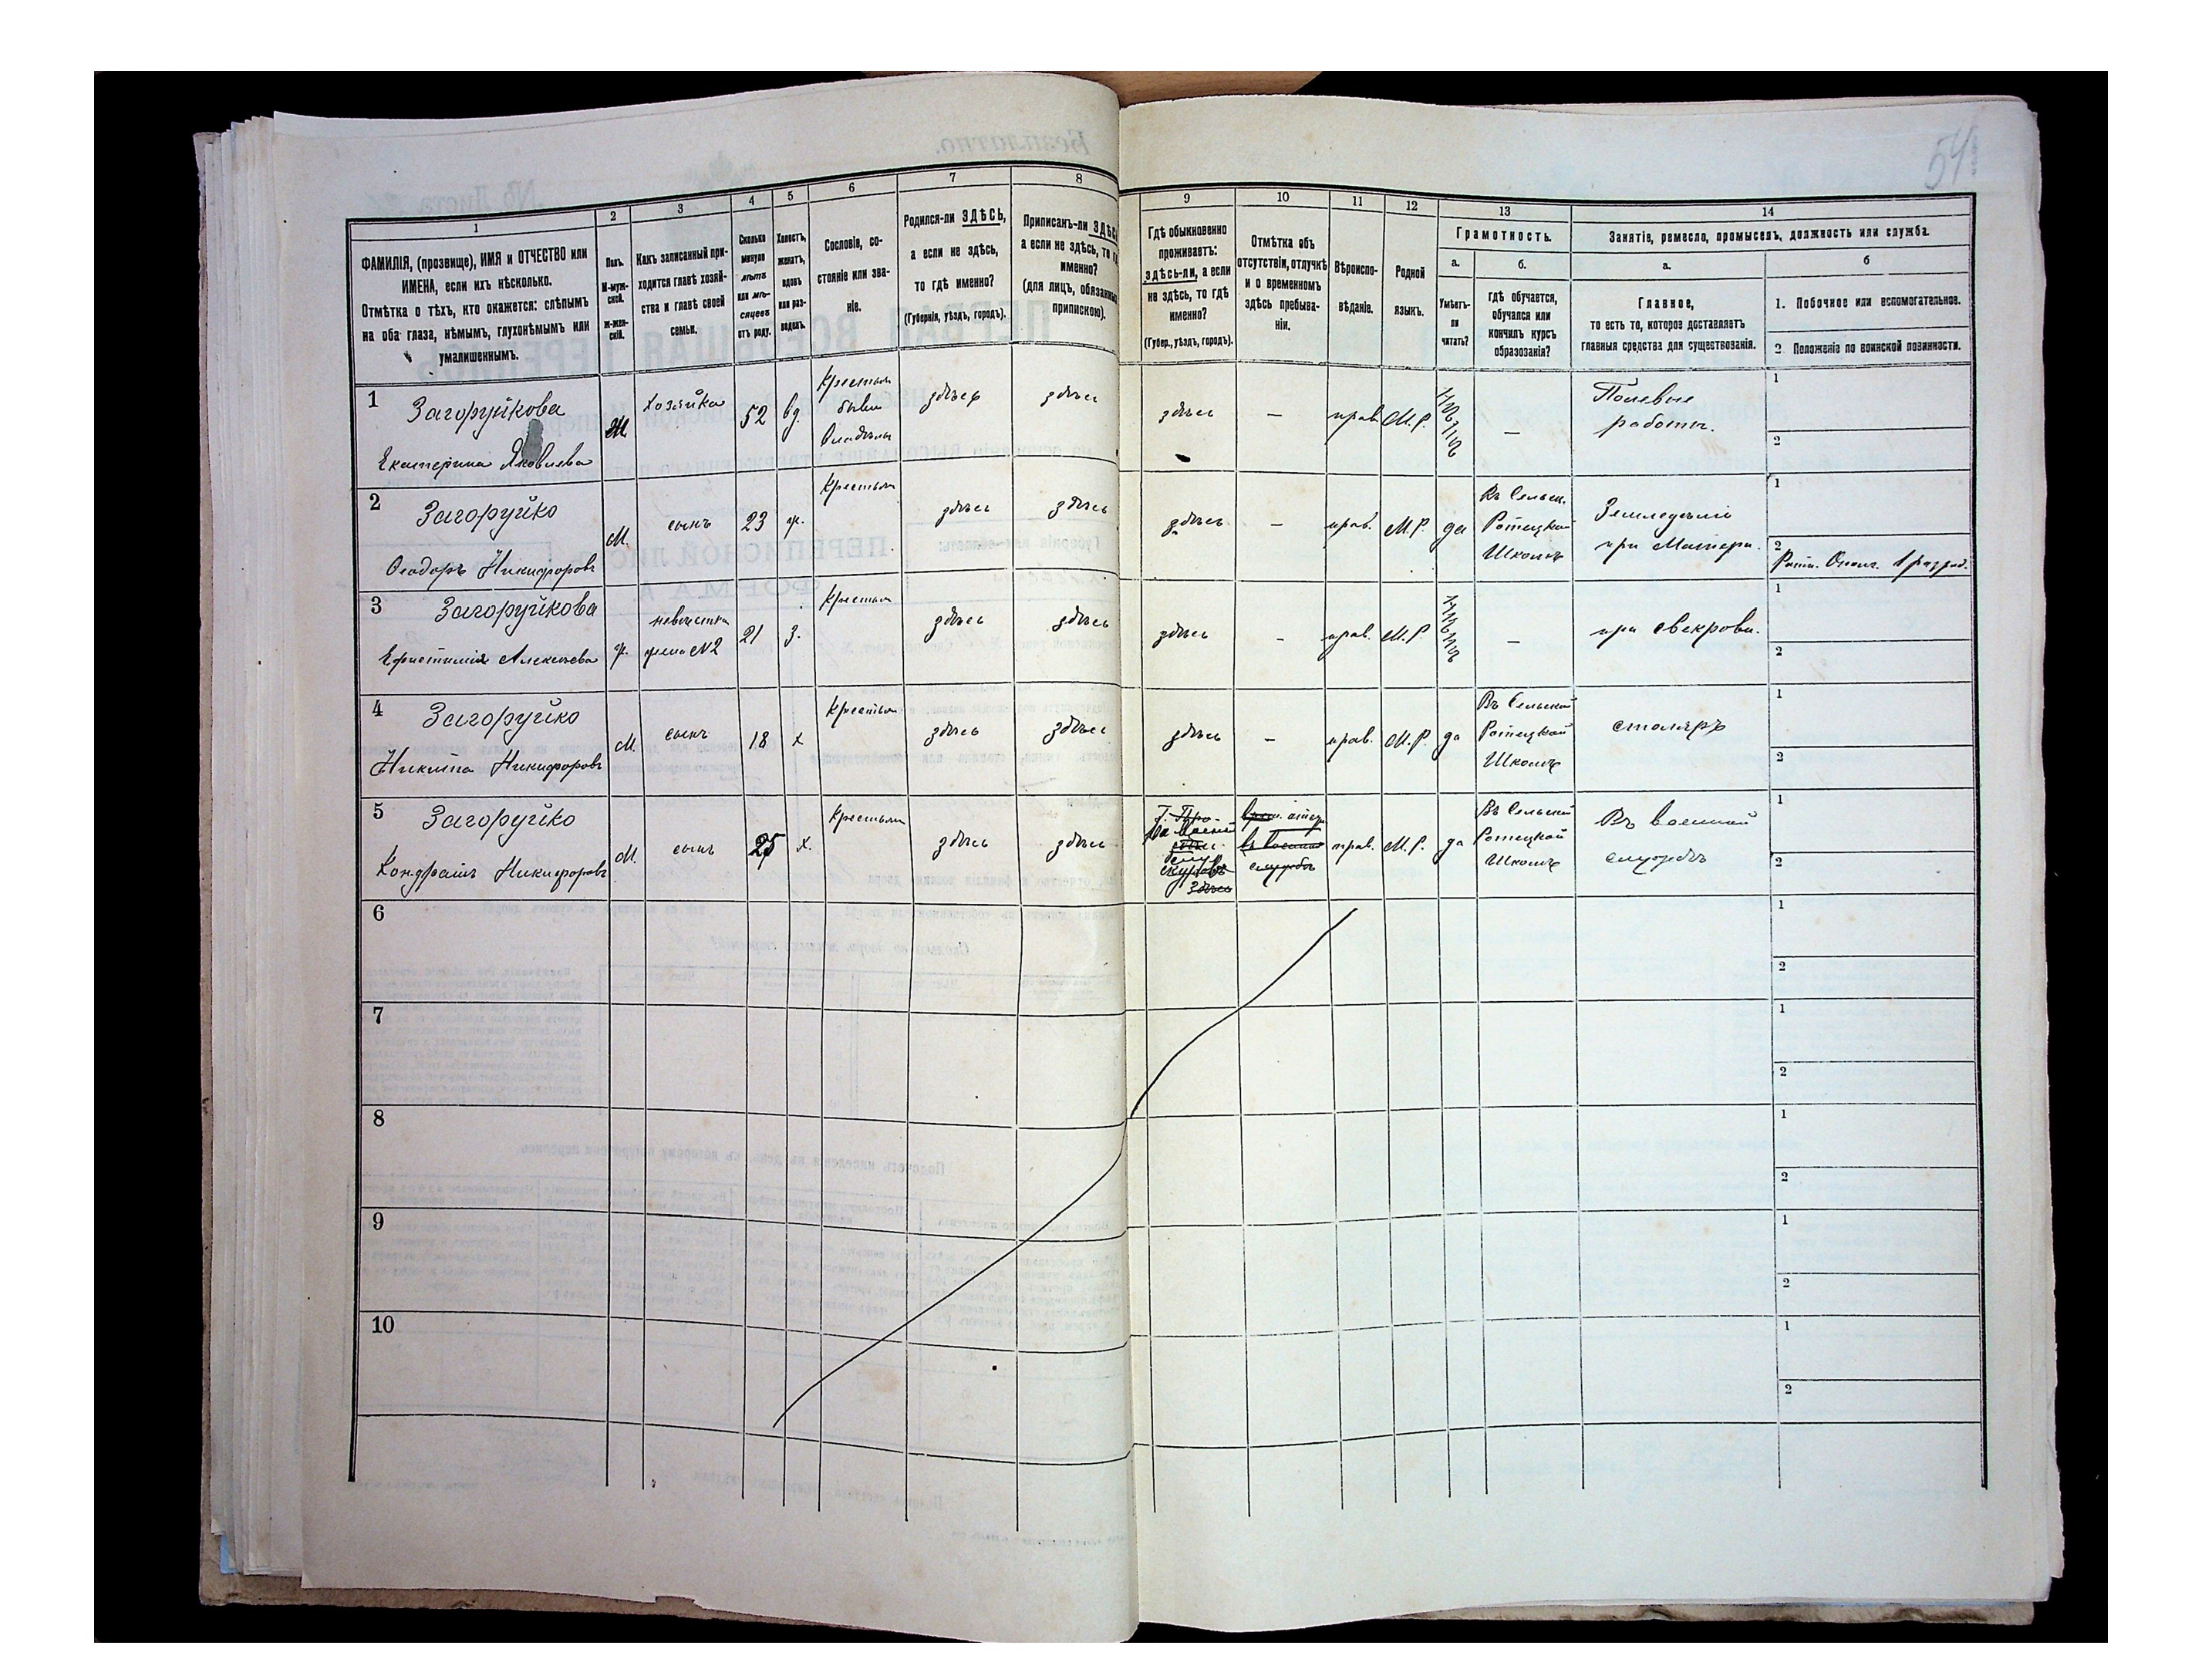 54
1
2
3
4
5
6
7
8
9
10
11
12
13
14
ФАМИЛІЯ, (прозвище), ИМЯ и ОТЧЕСТВО или
ИМЕНА, если ихъ нѣсколько.
Отмѣтка о тѣхъ, кто окажется: слѣпымъ
на оба глаза, нѣмымъ, глухонѣмымъ или
умалишеннымъ.
Полъ.
М-муж-
ской.
Ж-жен-
скій.
Какъ записанный при-
ходится главѣ хозяй-
ства и главѣ своей
семьи.
Сколько
минуло
лѣтъ
или мѣ-
сяцевъ
отъ роду.
Холостъ,
женатъ,
вдовъ
или раз-
веденъ.
Сословіе, со-
стояніе или зва-
ніе.
Родился-ли ЗДѢСЬ,
а если не здѣсь,
то гдѣ именно?
(Губернія, уѣздъ, городъ).
Приписанъ-ли
а если не здѣсь, то
именно?
(для лицъ,
припискою).
Гдѣ обыкновенно
проживаетъ:
здѣсь-ли, а если
не здѣсь, то гдѣ
именно?
(Губер., уѣздъ, городъ).
Отмѣтка объ
отсутствіи, отлучкѣ
и о временномъ
здѣсь пребыва-
ніи.
Вѣроиспо-
вѣданіе.
Родной
языкъ.
Грамотность.
а.
б.
Умѣетъ-
ли
читать?
гдѣ обучается,
обучался или
кончилъ курсъ
образованія?
Занятіе, ремесло, промыселъ, должность или служба.
а.
б
Главное,
то есть то, которое доставляетъ
главныя средства для существованія.
1. Побочное или вспомогательное.
2. Положеніе по воинской повинности.
1
Загоруйкова
Екатерина Яковлева
Ж.
хозяйка
52
вд.
Крестьян
бывш
здѣсь
здѣсь
здѣсь
—
прав.
М.Р.
нѣтъ
—
Полевые
работы.
1
2
2
Загоруйко
Ѳеодоръ Никифоровъ
М.
сынъ
23
ж.
Крестьян
здѣсь
здѣсь
здѣсь
—
прав.
М.Р.
да
Въ Сельск.
Ротецкой
Школѣ
Земледѣліе
при Матери.
1
2
Ратн. Ополч. 1 разряд.
3
Загоруйкова
Ефистимія Алексѣева
ж.
невѣстка
жена №2
21
з.
Крестьян
здѣсь
здѣсь
здѣсь
-
прав.
М.Р
нѣтъ
—
при свекрови.
1
2
4
Загоруйко
Никита Никифоровъ
М.
сынъ
18
х
Крестьян
здѣсь
здѣсь
здѣсь
—
прав.
М.Р.
да
Въ Сельской
Ротецкой
Школѣ
столяръ
1
2
5
Загоруйко
Кондратъ Никифоровъ
М.
сынъ
25
х.
Крестьян
здѣсь
здѣсь
здѣсь
службѣ
прав.
М.Р.
да
Въ Сельской
Ротецкой
Школѣ
Въ военной
службѣ
1
2
6
1
2
7
1
2
8
1
2
9
1
2
10
1
2